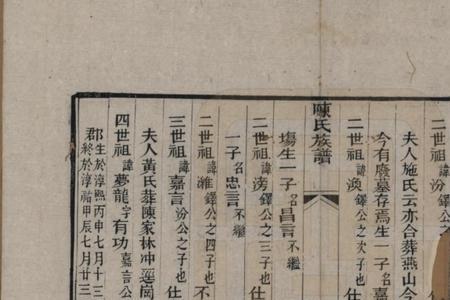 二世祖諱汾鐸公
夫人施氏云亦合葬燕山今
今有廢墓存焉生一子名
二世祖諱渙鐸公之次子也
陳氏族譜
塲生一子名昌言不繼
二世祖諱滂鐸公之三子也仕
一子名忠言不繼
二世祖諱濰鐸公之四子也不
三世祖諱嘉言汾公之子也仕
夫人黃氏葬陳家林冲遶崗
四世祖諱夢龍字有功嘉言公
郡生於淳熙丙申七月十三
終於淳祐甲辰七月廿三